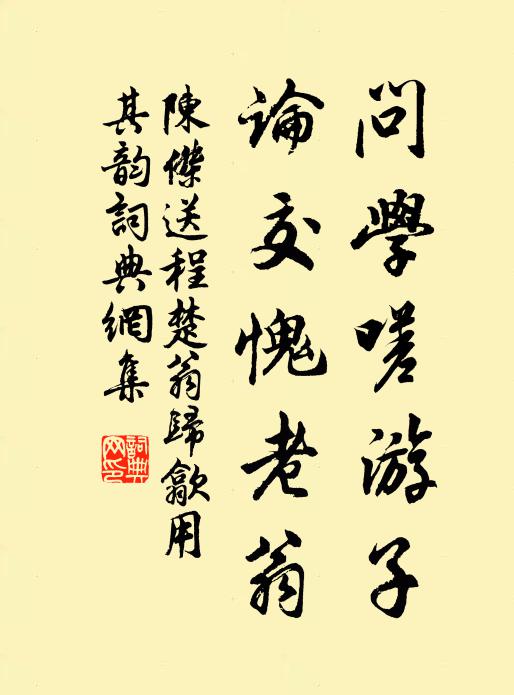 問學嗟游子
論交愧老翁
陳傑送程楚翁歸歙用
其韵詞典網集
詞典網印